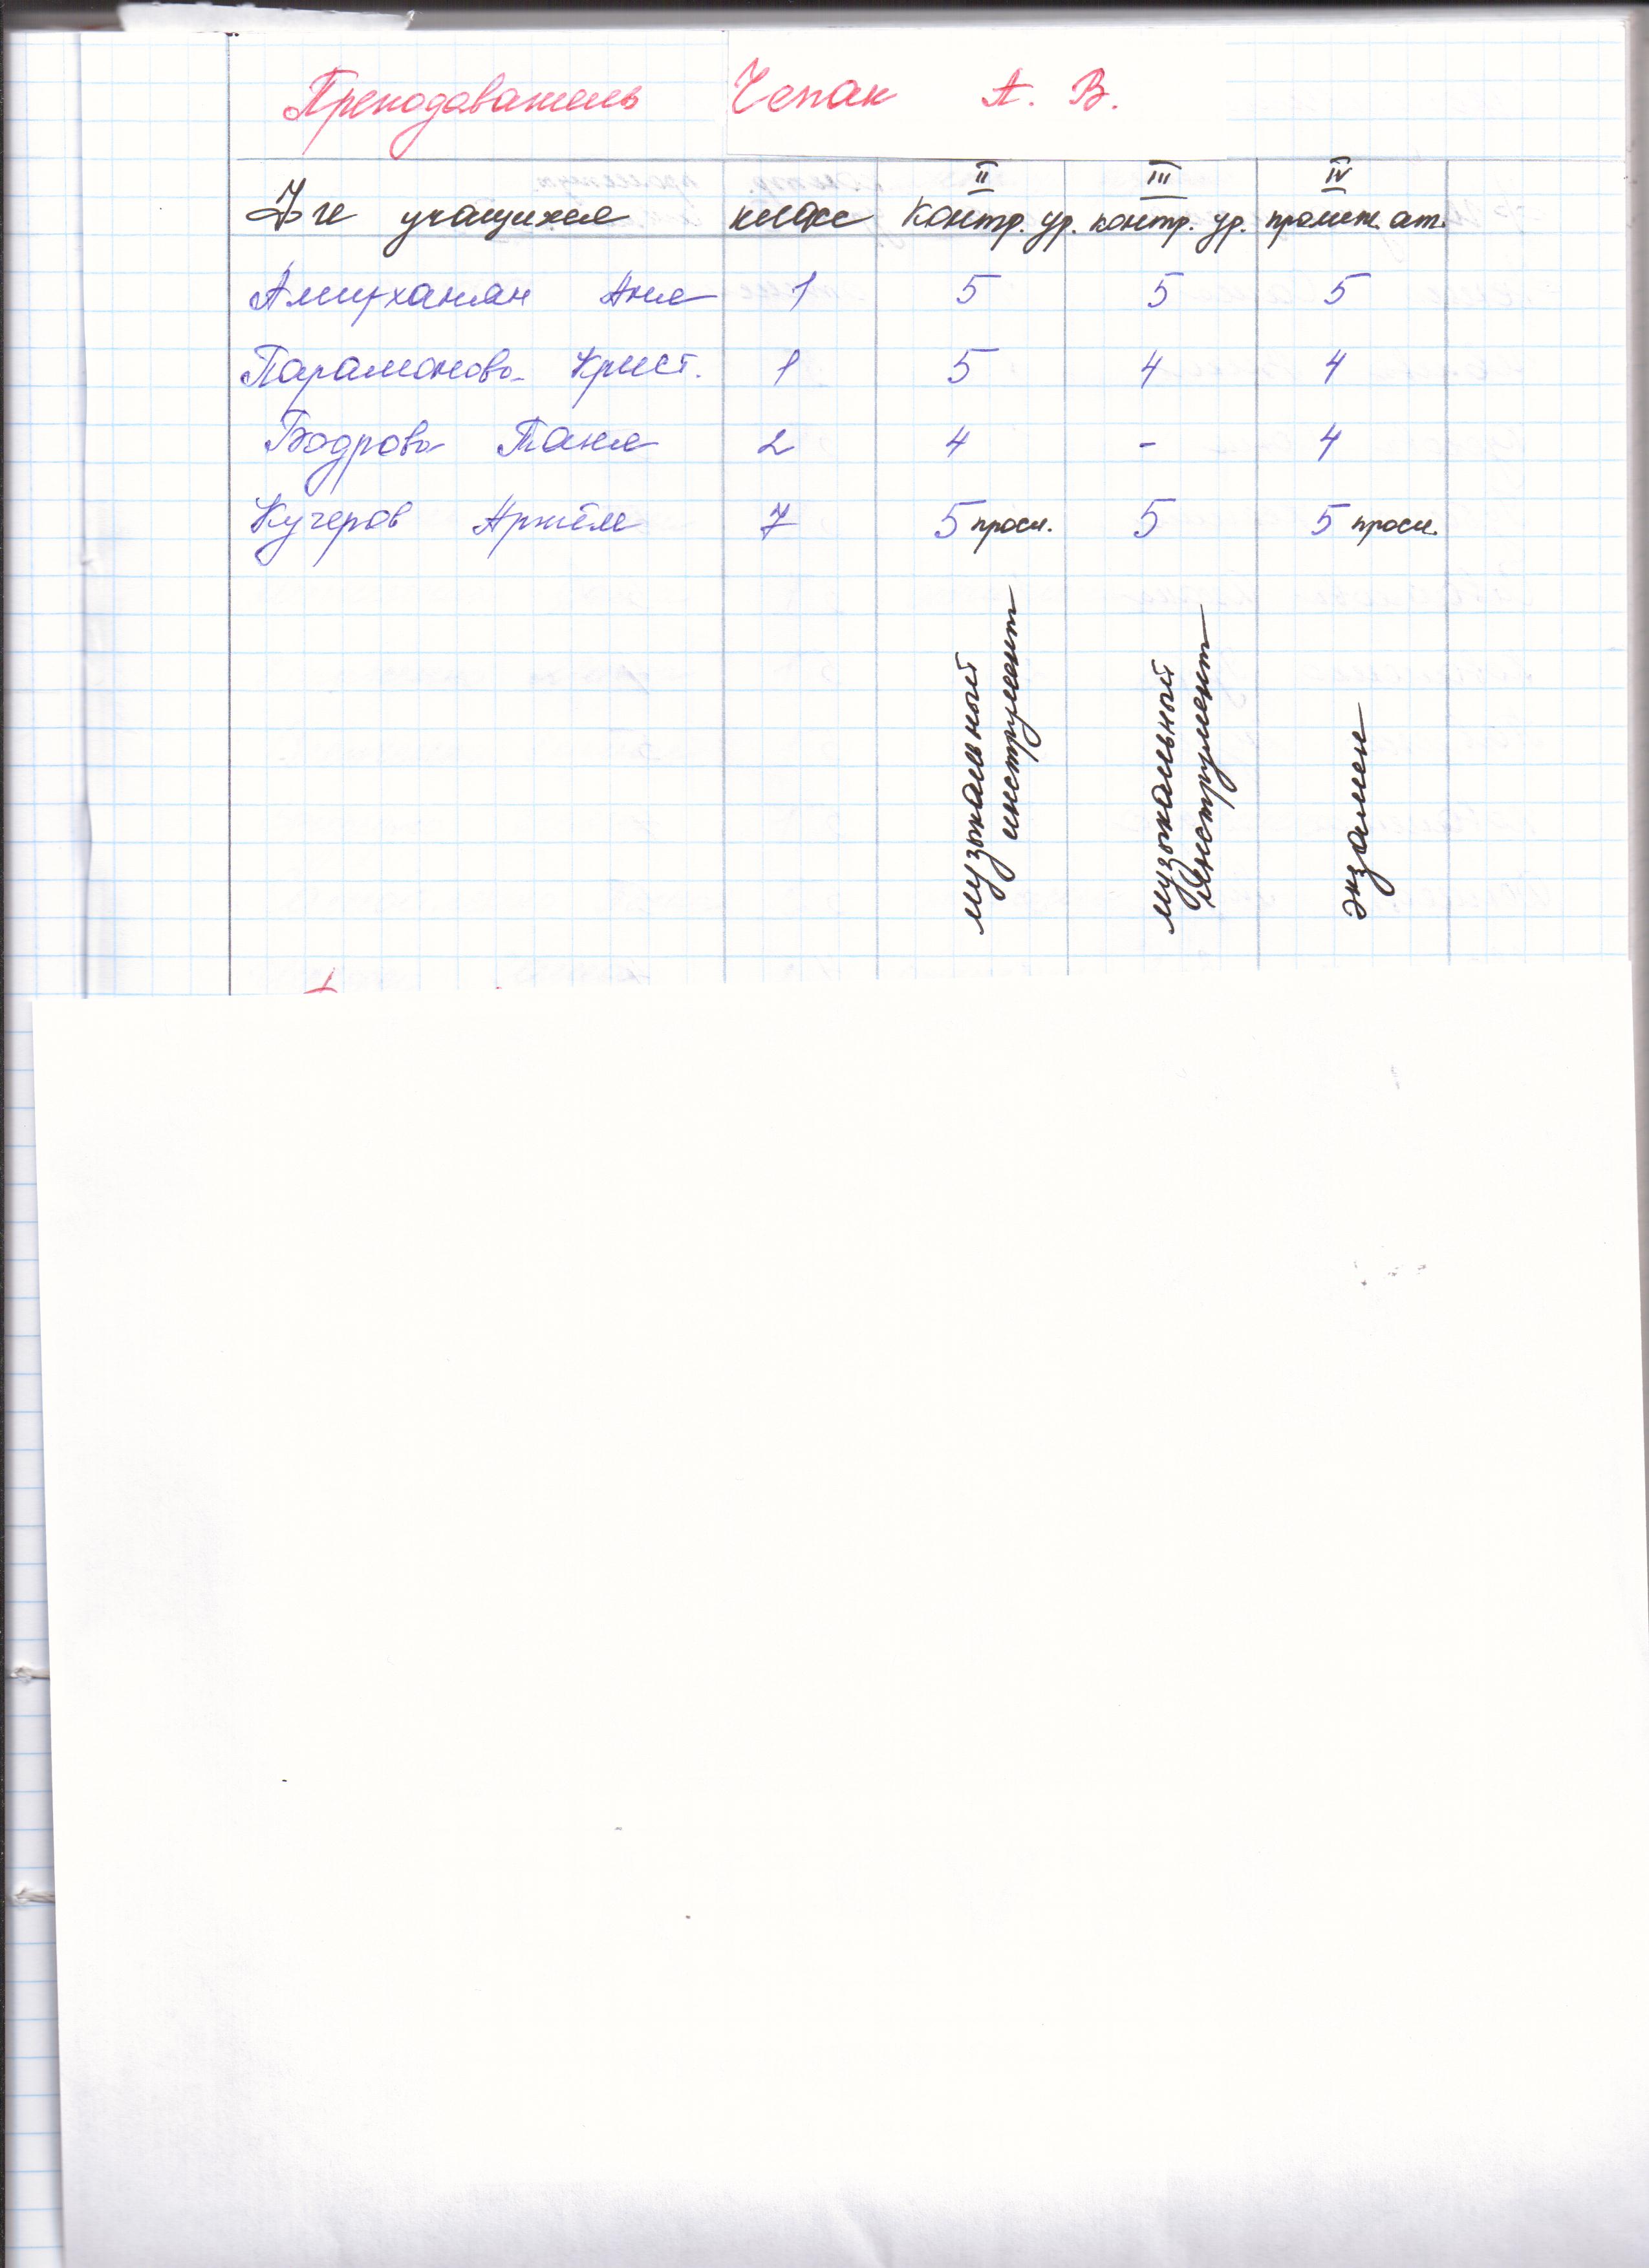 Преподаватель Чепак А. В.
II III IV
Ф ИО учащихся класс контр. ур. контр. ур. промеж. ат.
Амирханян Аня 1 5 5 5
Парамонова Крист. 1 5 4 4
Бодрова Таня 2 4 - 4
Кучеров Артём 7 5 просл. 5 5 просл.
музыкальный
инструмент
музыкальный
инструмент
экзамен